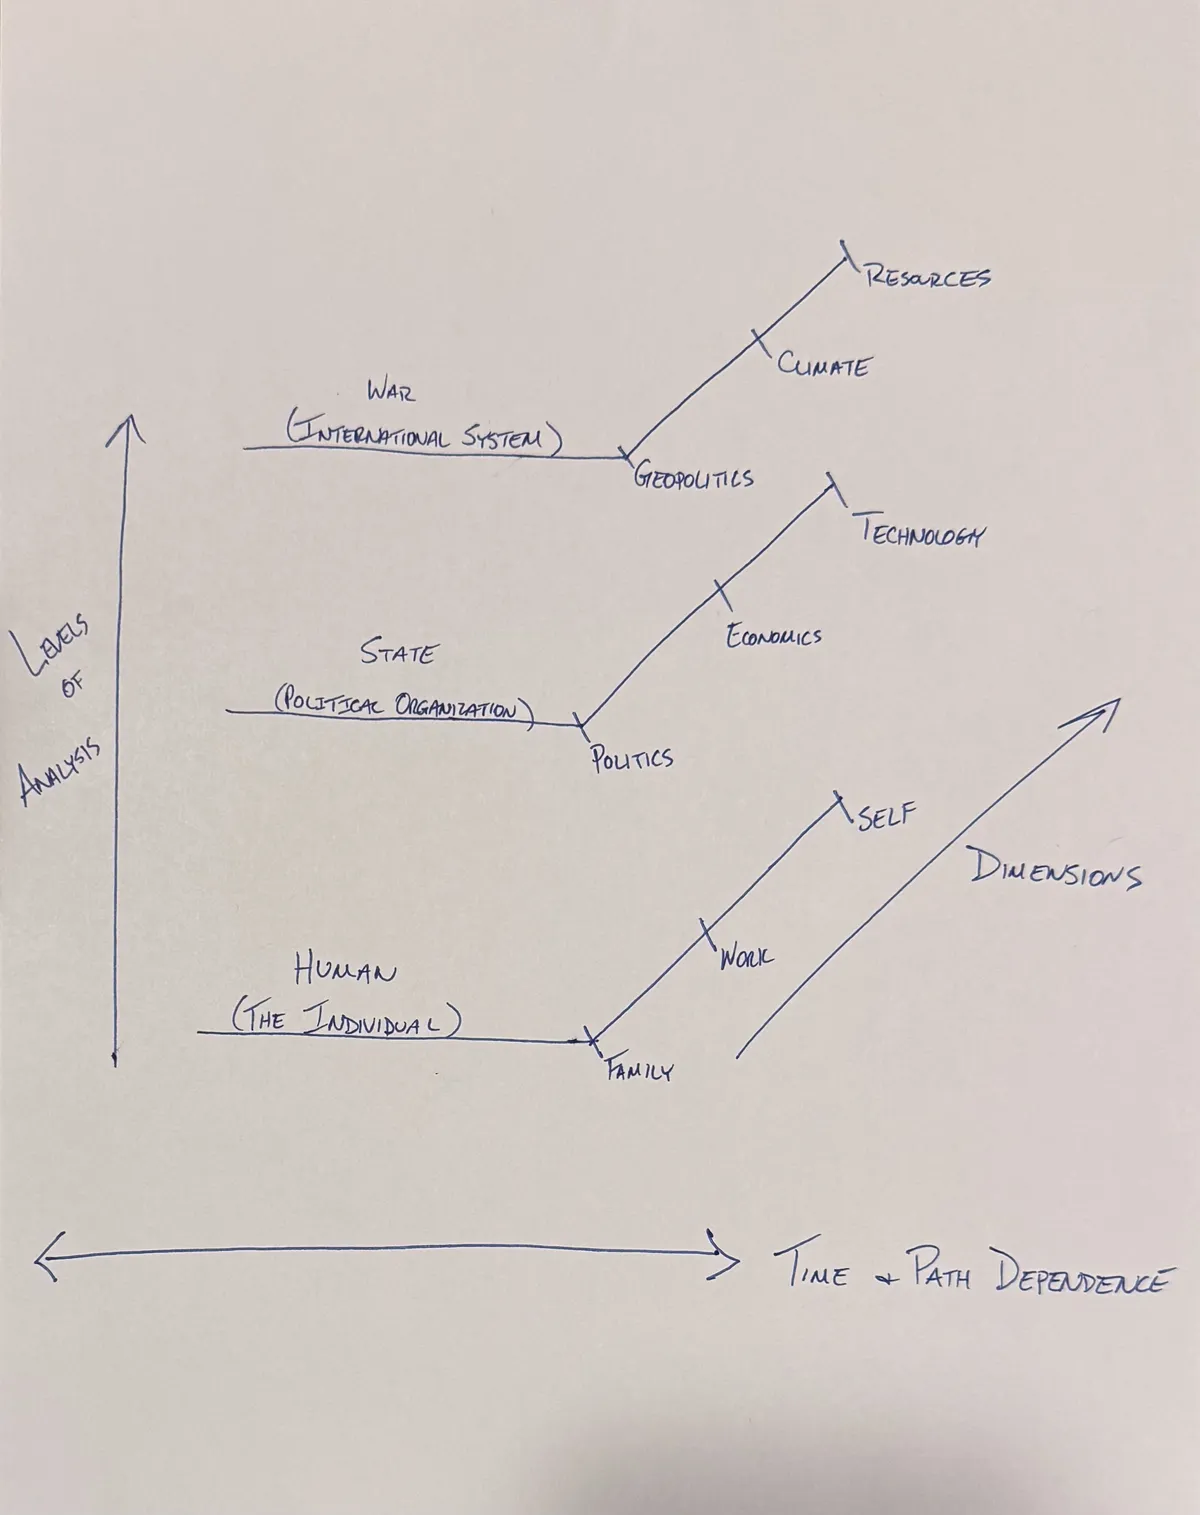 RESOURCES
CLIMATE
WAR
(INTERNATIONAL SYSTEM)
GEOPOLITICS
TECHNOLOGY
ECONOMICS
STATE
(POLITICAL ORGANIZATION)
POLITICS
LEVELS
OF
ANALYSIS
SELF
DIMENSIONS
WORK
HUMAN
(THE INDIVIDUAL)
FAMILY
TIME & PATH DEPENDENCE